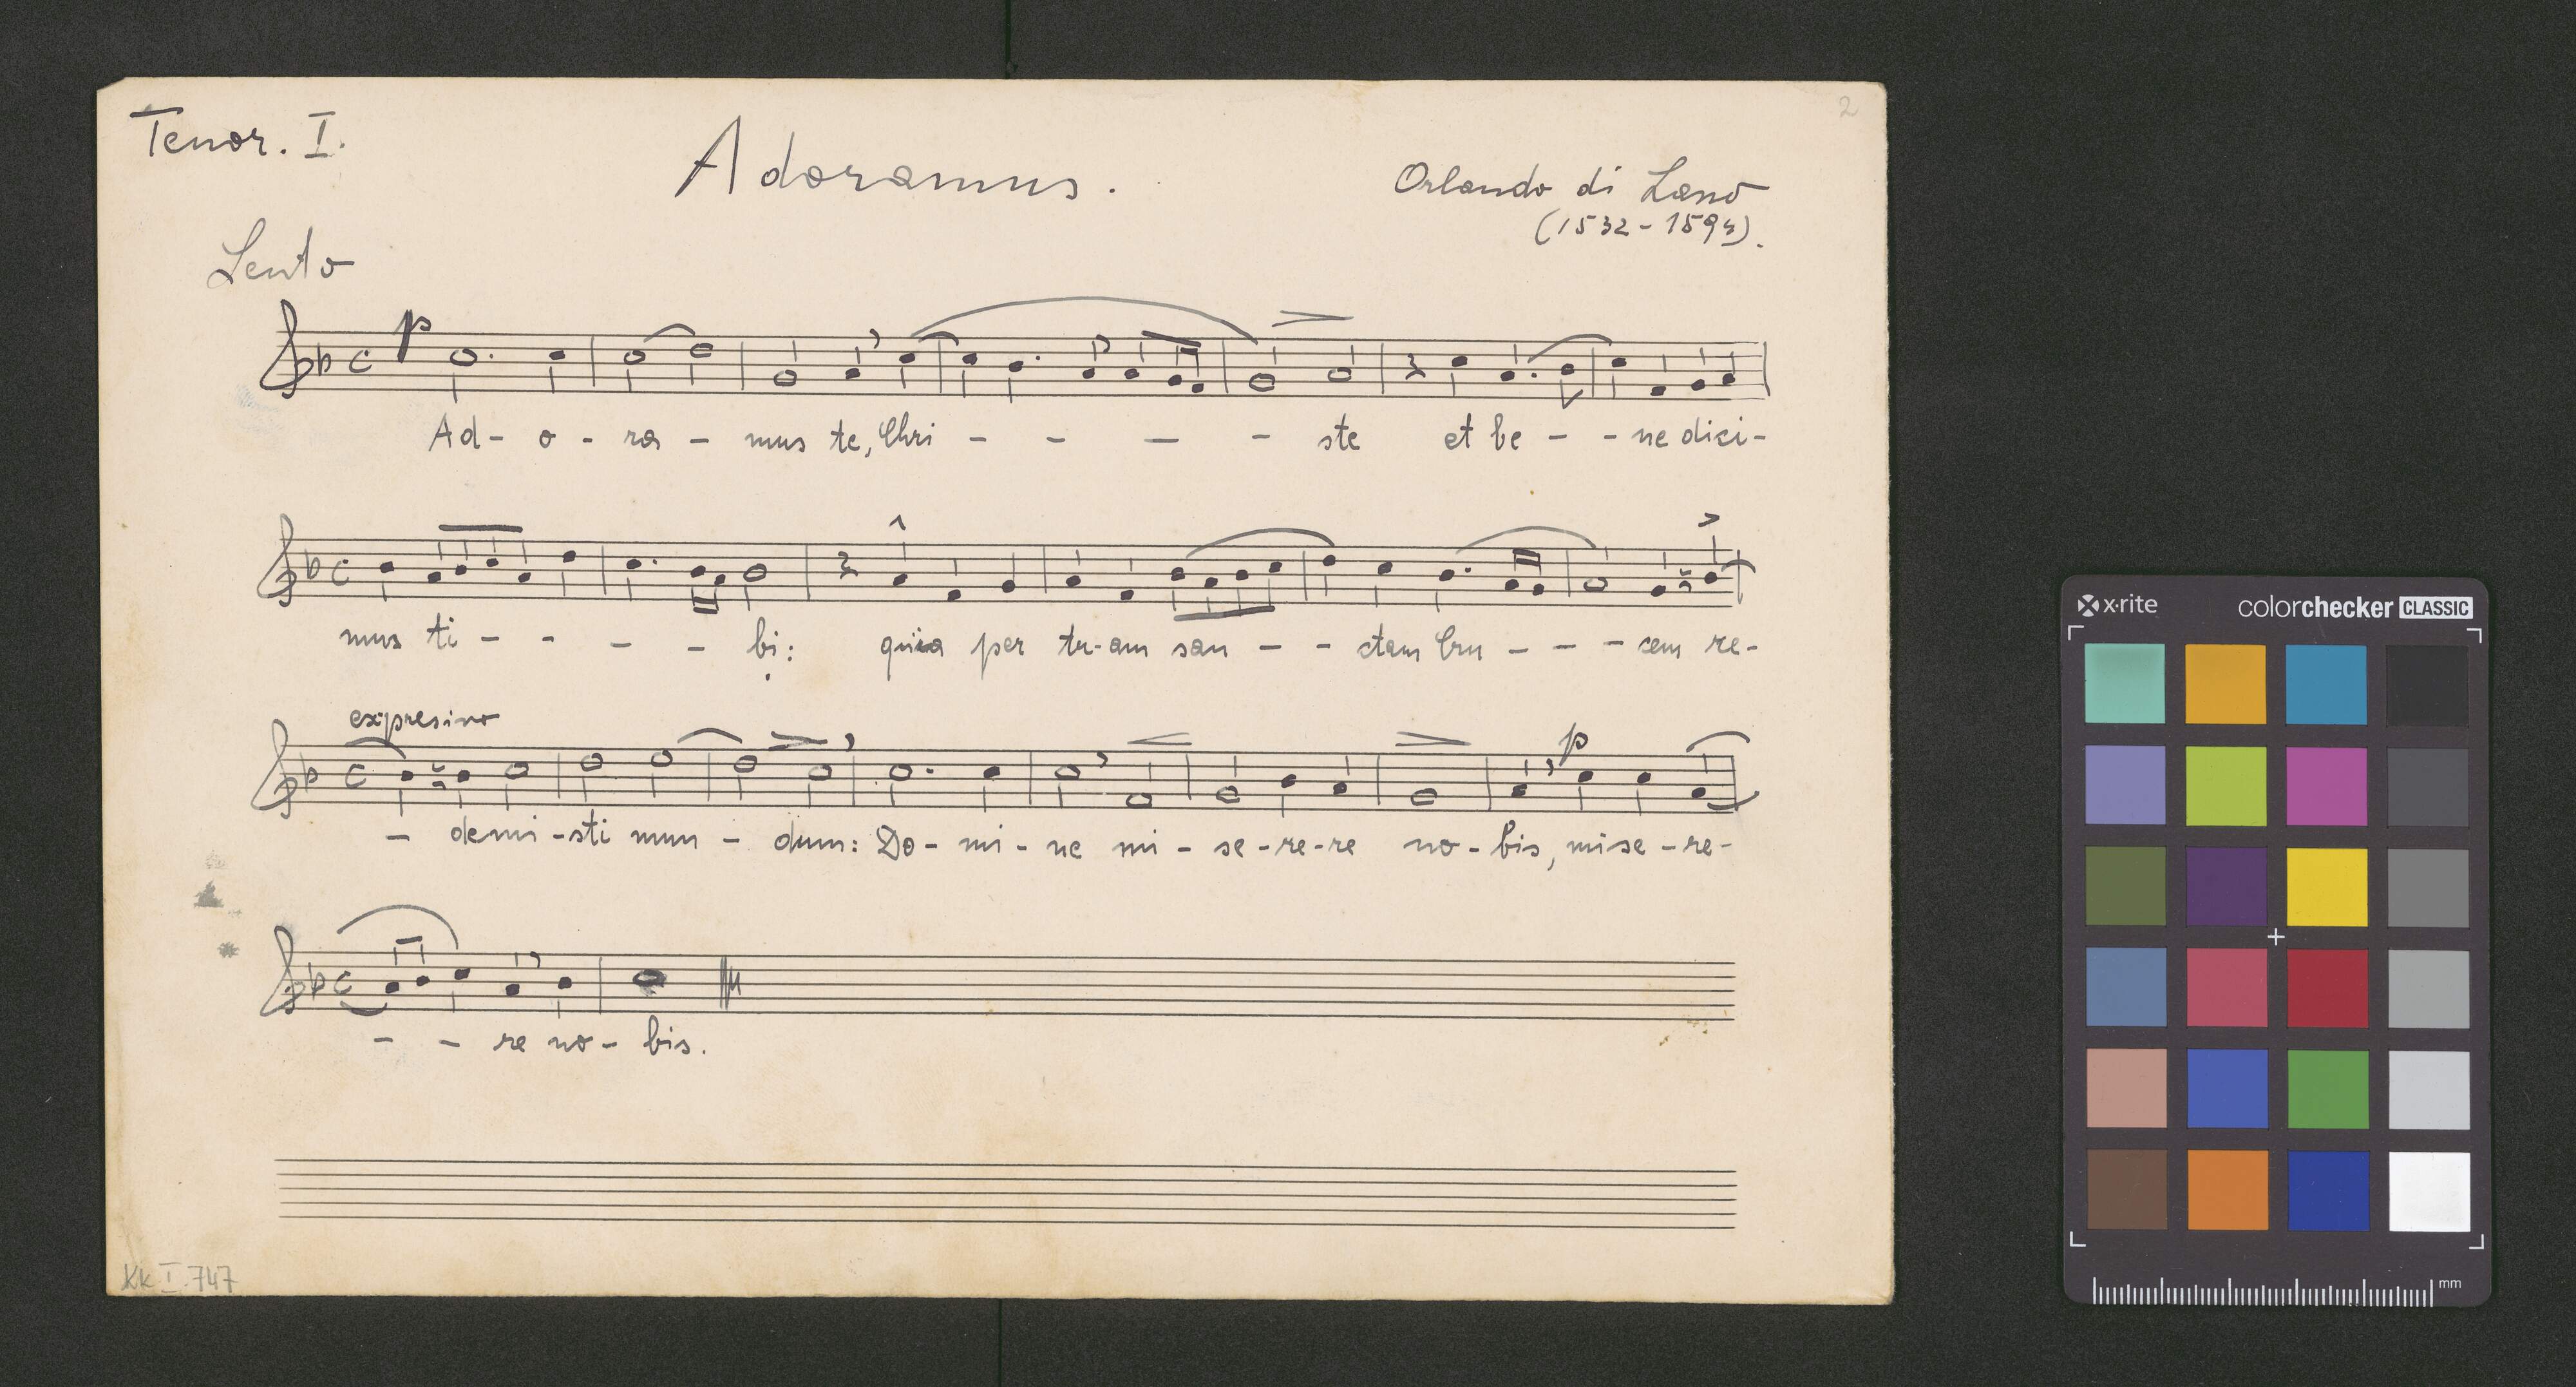 2
Tenor. I.
Adoramus.
Orlando di Lasso
(1532-1594).
Lento
p
Ad- o - ra - mus te, Chri - - - - ste et be - - ne dici-
mus ti - - - - bi: quia per tu-am san - - ctam Cru - - - cem re-
expresivo
p
- demi -sti mun - dum: Do- mi- ne mi - se-re-re no-bis, mise-re-
- - re no- bis.
KK I. 747
x·rite
colorchecker CLASSIC
mm